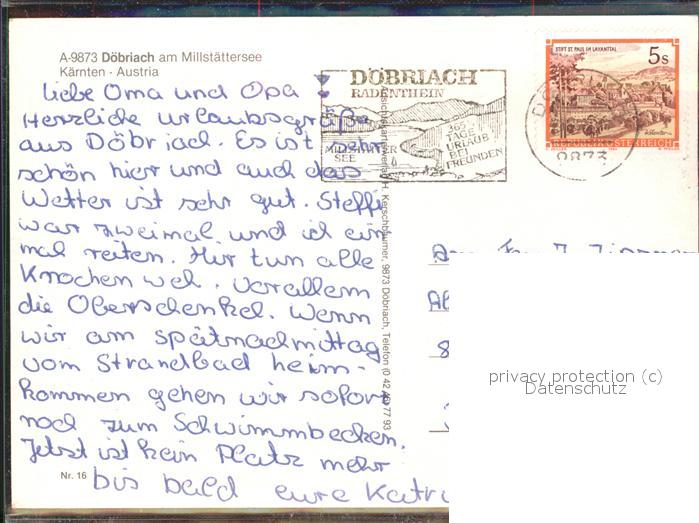 A-9873 Döbriach am Millstättersee
Kärnten · Austria
Liebe Oma und Opa
Herzliche Urlaubsgrüße
aus Döbriach. Es ist sehr
schön hier und auch das
Wetter ist sehr gut. Steffi
war zweimal und ich ein
mal reiten. Mir tun alle
Knochen weh. Vorallem
die Oberschenkel. Wenn
wir am spätnachmittag
vom Strandbad heim-
kommen gehen wir sofort
noch zum Schwimmbecken.
Jetzt ist kein Platz mehr
bis bald eure Katri
Nr. 16
H. Kerschbaumer, 9873 Döbriach, Telefon (0 42 46) 77 93
DÖBRIACH
RADENTHEIN
MILLSTÄTTER
SEE
365
TAGE
URLAUB
BEI
FREUNDEN
STIFT ST. PAUL IM LAVANTTAL
5s
REPUBLIK ÖSTERREICH
9873
privacy protection (c)
Datenschutz